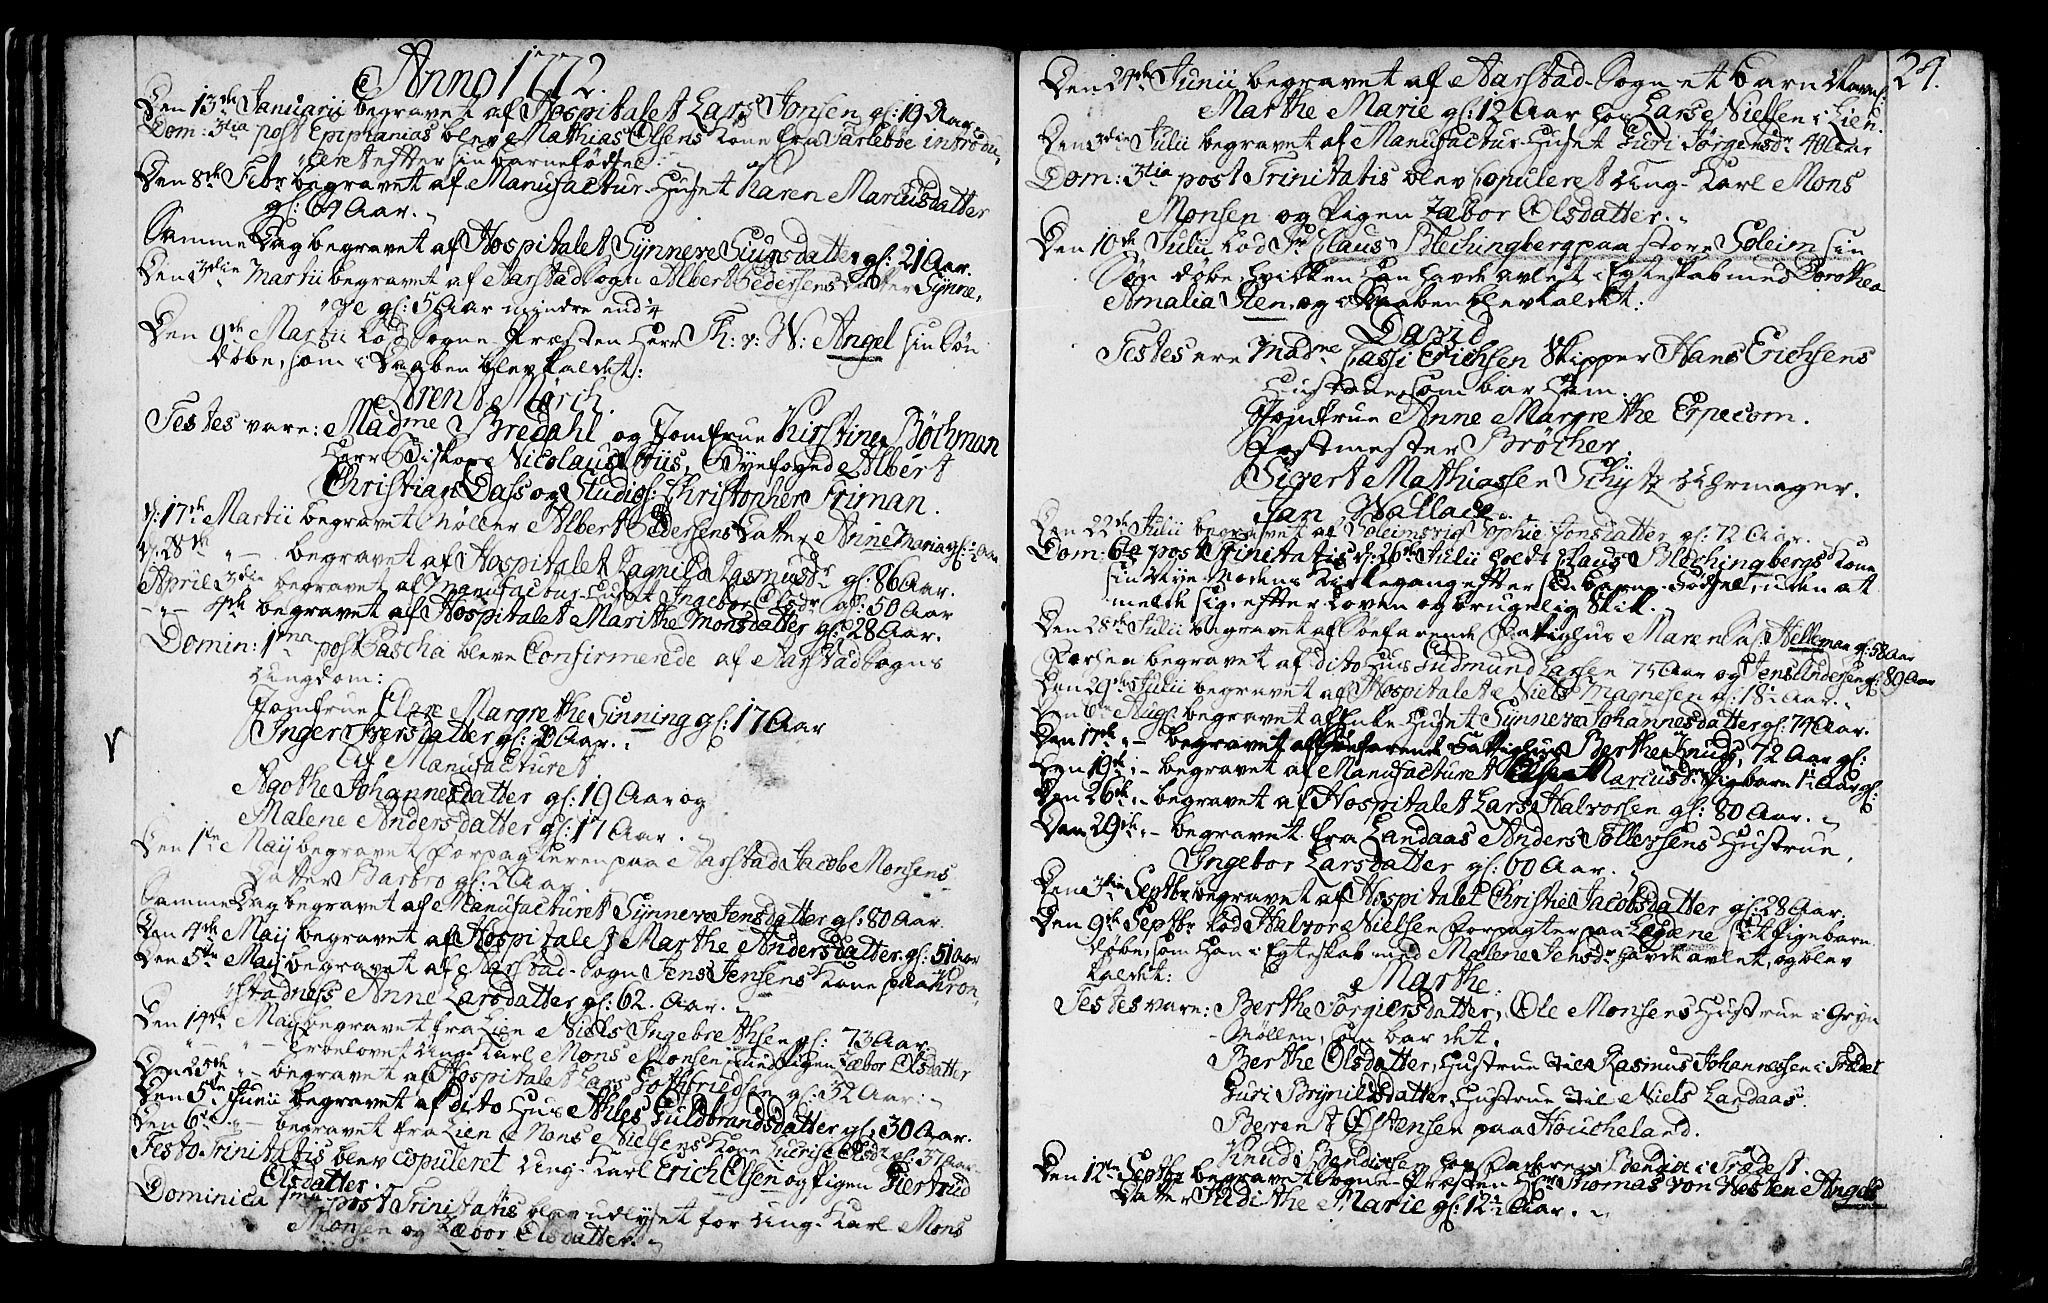 Anno 1772.
Den 13de Januarii begravet af Hospitalet Lars Jonsen gl: 19 Aar.
Dom: 3tia post Epiphanias blev Mathias Olsens Kone fra Tarlebøe introdu-
ceret efter sin barnefødsel.
Den 8de Febr begravet af Manufactur-Huset Karen Marcusdatter
gl: 64 Aar.
Samme Dag begravet af Hospitalet Synneve Siursdatter gl: 21 Aar.
Den 3die Martii begravet af Aarstad Sogn Albert Pedersens Datter Synne-
ve gl: 5 Aar mindre end 1/4
Den 9de Martii lod Sogne-Præsten Herr Th: v: W: Angel sin Søn
døbe, som i Daaben blev kaldet:
Arent Mørch.
Testes vare: Madme Bredahl og Jomfrue Kirstine Bøchman
Herr Biskop Nicolaus Friis, Byefoged Albert
Christian Dass og Studios: Christopher Friman.
d: 17de Martii begravet Møller Albert Pedersens Datter Anne Maria gl: 1/2 Aar
d: 28de - begravet af Hospitalet Ragnild Rasmusdr gl: 86 Aar.
April 3die begravet af Manufactur-Huset Ingebor Olsdr gl: 50 Aar
- 4de begravet af Hospitalet Marithe Monsdatter gl: 28 Aar.
Domin: 1ma post Pascha bleve Confirmerede af Aarstad Sogns
Ungdom:
Jomfrue Clare Margrethe Ginning gl: 17 Aar
Inger Iversdatter gl: 20 Aar.
Af Manufacturet
Agothe Johannesdatter gl: 19 Aar og
Malene Andersdatter gl: 17 Aar.
Den 1te Maij begravet Forpagteren paa Aarstad Jacob Monsens
Datter Barbro gl: 2 Aar
Samme Dag begravet af Manufacturet Synneve Jensdatter gl: 80 Aar.
Den 4de Maij begravet af Hospitalet Marthe Andersdatter gl: 51 Aar
Den 5te Maij begravet af Aarstad-Sogn Jens Jensens Kone paa Kron-
stadness Anne Larsdatter gl: 62. Aar.
Den 14de Maij begravet fra Lien Niels Ingebrethsen gl: 73 Aar.
- - Trolovet Ung-Karl Mons Monsen med Pigen Zæbor Olsdatter
Den 25de - begravet af Hospitalet Lars Gothfriedsen gl: 32 Aar.
Den 5te Junii begravet af dito Hus Ahles Guldbrandsdatter gl: 30 Aar.
Den 6te - begravet fra Lien Mons Nielsens Kone Gurise Olsdr gl: 37 Aar.
Festo Trinitatis blev copuleret Ung-Karl Erich Olsen og Pigen Giertrud
Olsdatter.
Dominica 1ma post Trinitatis blev udlyset for Ung-Karl Mons
Monsen og Zæbor Olsdatter.
24.
Den 24de Junii begravet af Aarstad-Sogn et barn Navnl:
Marthe Marie gl: 12 Aar hos Lars Nielsen i Lien.
Den 3die Julii begravet af Manufactur-Huset Guri Jørgensdr 40 Aar
Dom: 3tia post Trinitatis blev Copuleret Ung-Karl Mons
Monsen og Pigen Zæbor Olsdatter.
Den 10de Julii lod Sr Claus Blechingberg paa store Soleim sin
Søn døbe, hvilken han havde avlet i Egteskab med Dorothea
Amalia Sten, og i Daaben blev kaldet:
David
Testes ere Madme Cassi Erichsen Skipper Hans Erichsens
Hustrue, som bar ham.
Jomfrue Anne Margrethe Erpecom.
Postmester Brøcher.
Sivert Mathiassen Schytz Uhrmager.
Jan Wallace.
Den 22de Julii begravet af Soleimsvig Sophie Jonsdatter gl: 72 Aar.
Dom: 6ta post Trinitatis d: 26de Julii holdt Claus Blechingbergs Kone
sin Kirkegang efter sin barne-Fødsel, uden at
melde sig, efter Loven og brugelig Skik.
Den 28de Julii begravet af Søefarende Fattighus Maren Helleman gl: 58 Aar
begravet af dito Hus Gudmund Larsen 75 Aar og Jens Andersen gl: 89 Aar
Den 29de Julii begravet af Hospitalet Niels Magnesen gl: 18 1/2 Aar.
Den 6te Aug: begravet af Enke-Huset Synneve Johannesdatter gl: 74 Aar.
Den 17de - begravet af Søefarende Fattighus Berthe Knuds, 72 Aar gl:
Den 19de - begravet af Manufacturet Else Marcusdr Pigebarn 1 1/2 Aar gl:
Den 26de - begravet af Hospitalet Lars Halvorsen gl: 80 Aar.
Den 29de - begravet fra Landaas Anders Tollefsens Hustrue,
Ingebor Larsdatter gl: 60 Aar.
Den 3die Septbr begravet af Hospitalet Christie Jacobsdatter gl: 28 Aar.
Den 9de Septbr lod Halvor Nielsen Forpagter paa Lægdene sit Pigebarn
døbe, som han i Egteskab med Malene Jensdr havde avlet, og blev
kaldet:
Marthe.
Testes vare: Berthe Torgiersdatter, Ole Monsens Hustrue i Gryn
Møllen, som bar det.
Berthe Olsdatter, Hustrue til Rasmus Johannessen i Trædet
Guri Brynildsdatter, Hustrue til Niels Landaas.
Berent Østensen paa Houcheland.
Knud Bendixsen hos Faderen Bendix i Trædet.
Den 12te Septbr begravet Sogne-Præsten Hr Thomas von Westen Angels
Datter Judithe Marie gl: 12 1/2 Aar.